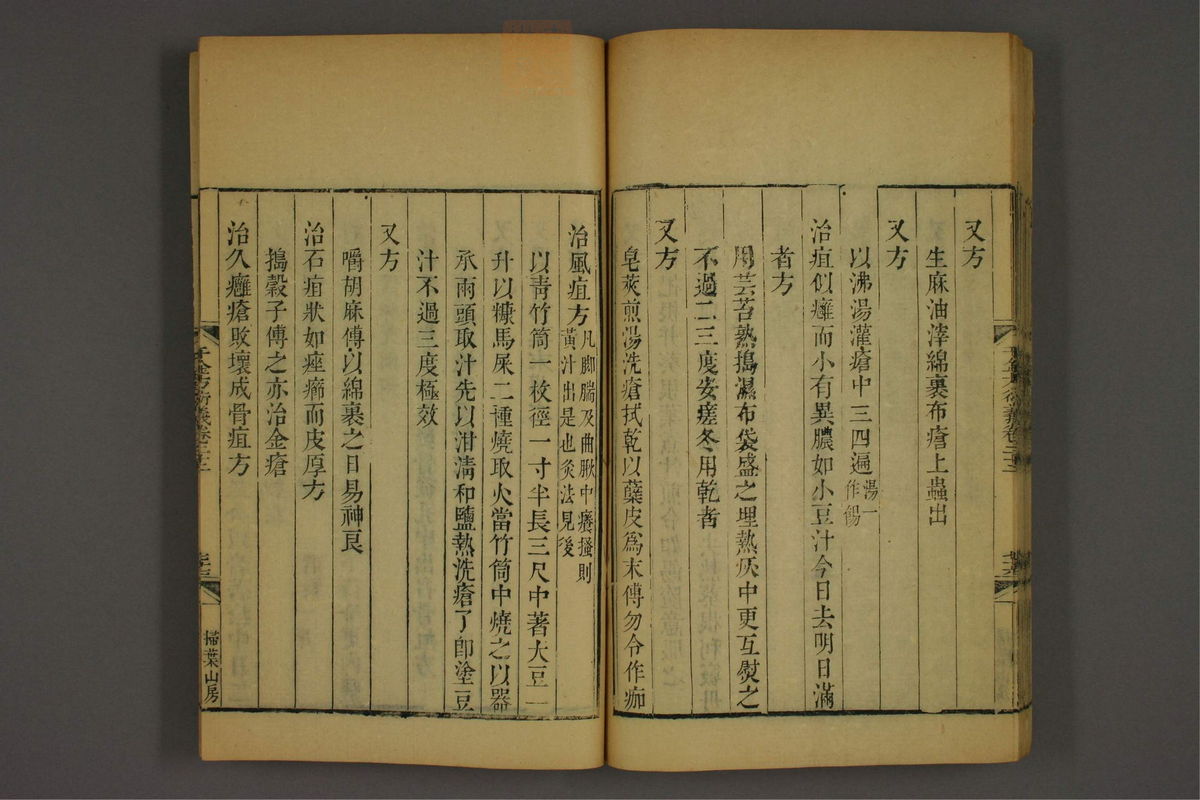 又方
生麻油滓綿裹布瘡上蟲出
又方
以沸湯灌瘡中三四遍湯一作餳
治疽似癰而小有異膿如小豆汁今日去明日滿
者方
用芸苔熟搗濕布袋盛之埋熱灰中更互熨之
不過二三度安瘥冬用乾者
又方
皂莢煎湯洗瘡拭乾以蘗皮為末傅勿令作痂
治風疽方凡腳腨及曲脉中癢搔則黃汁出是也灸法見後
以青竹筒一枚徑一寸半長三尺中著大豆一
升以糠馬屎二種燒取火當竹筒中燒之以器
承兩頭取汁先以泔清和鹽熱洗瘡了卽塗豆
汁不過三度極效
又方
嚼胡麻傅以綿裹之日易神良
治石疽狀如痤癤而皮厚方
搗穀子傅之亦治金瘡
治久癰瘡敗壞成骨疽方
千金方衍義卷二十二
掃葉山房